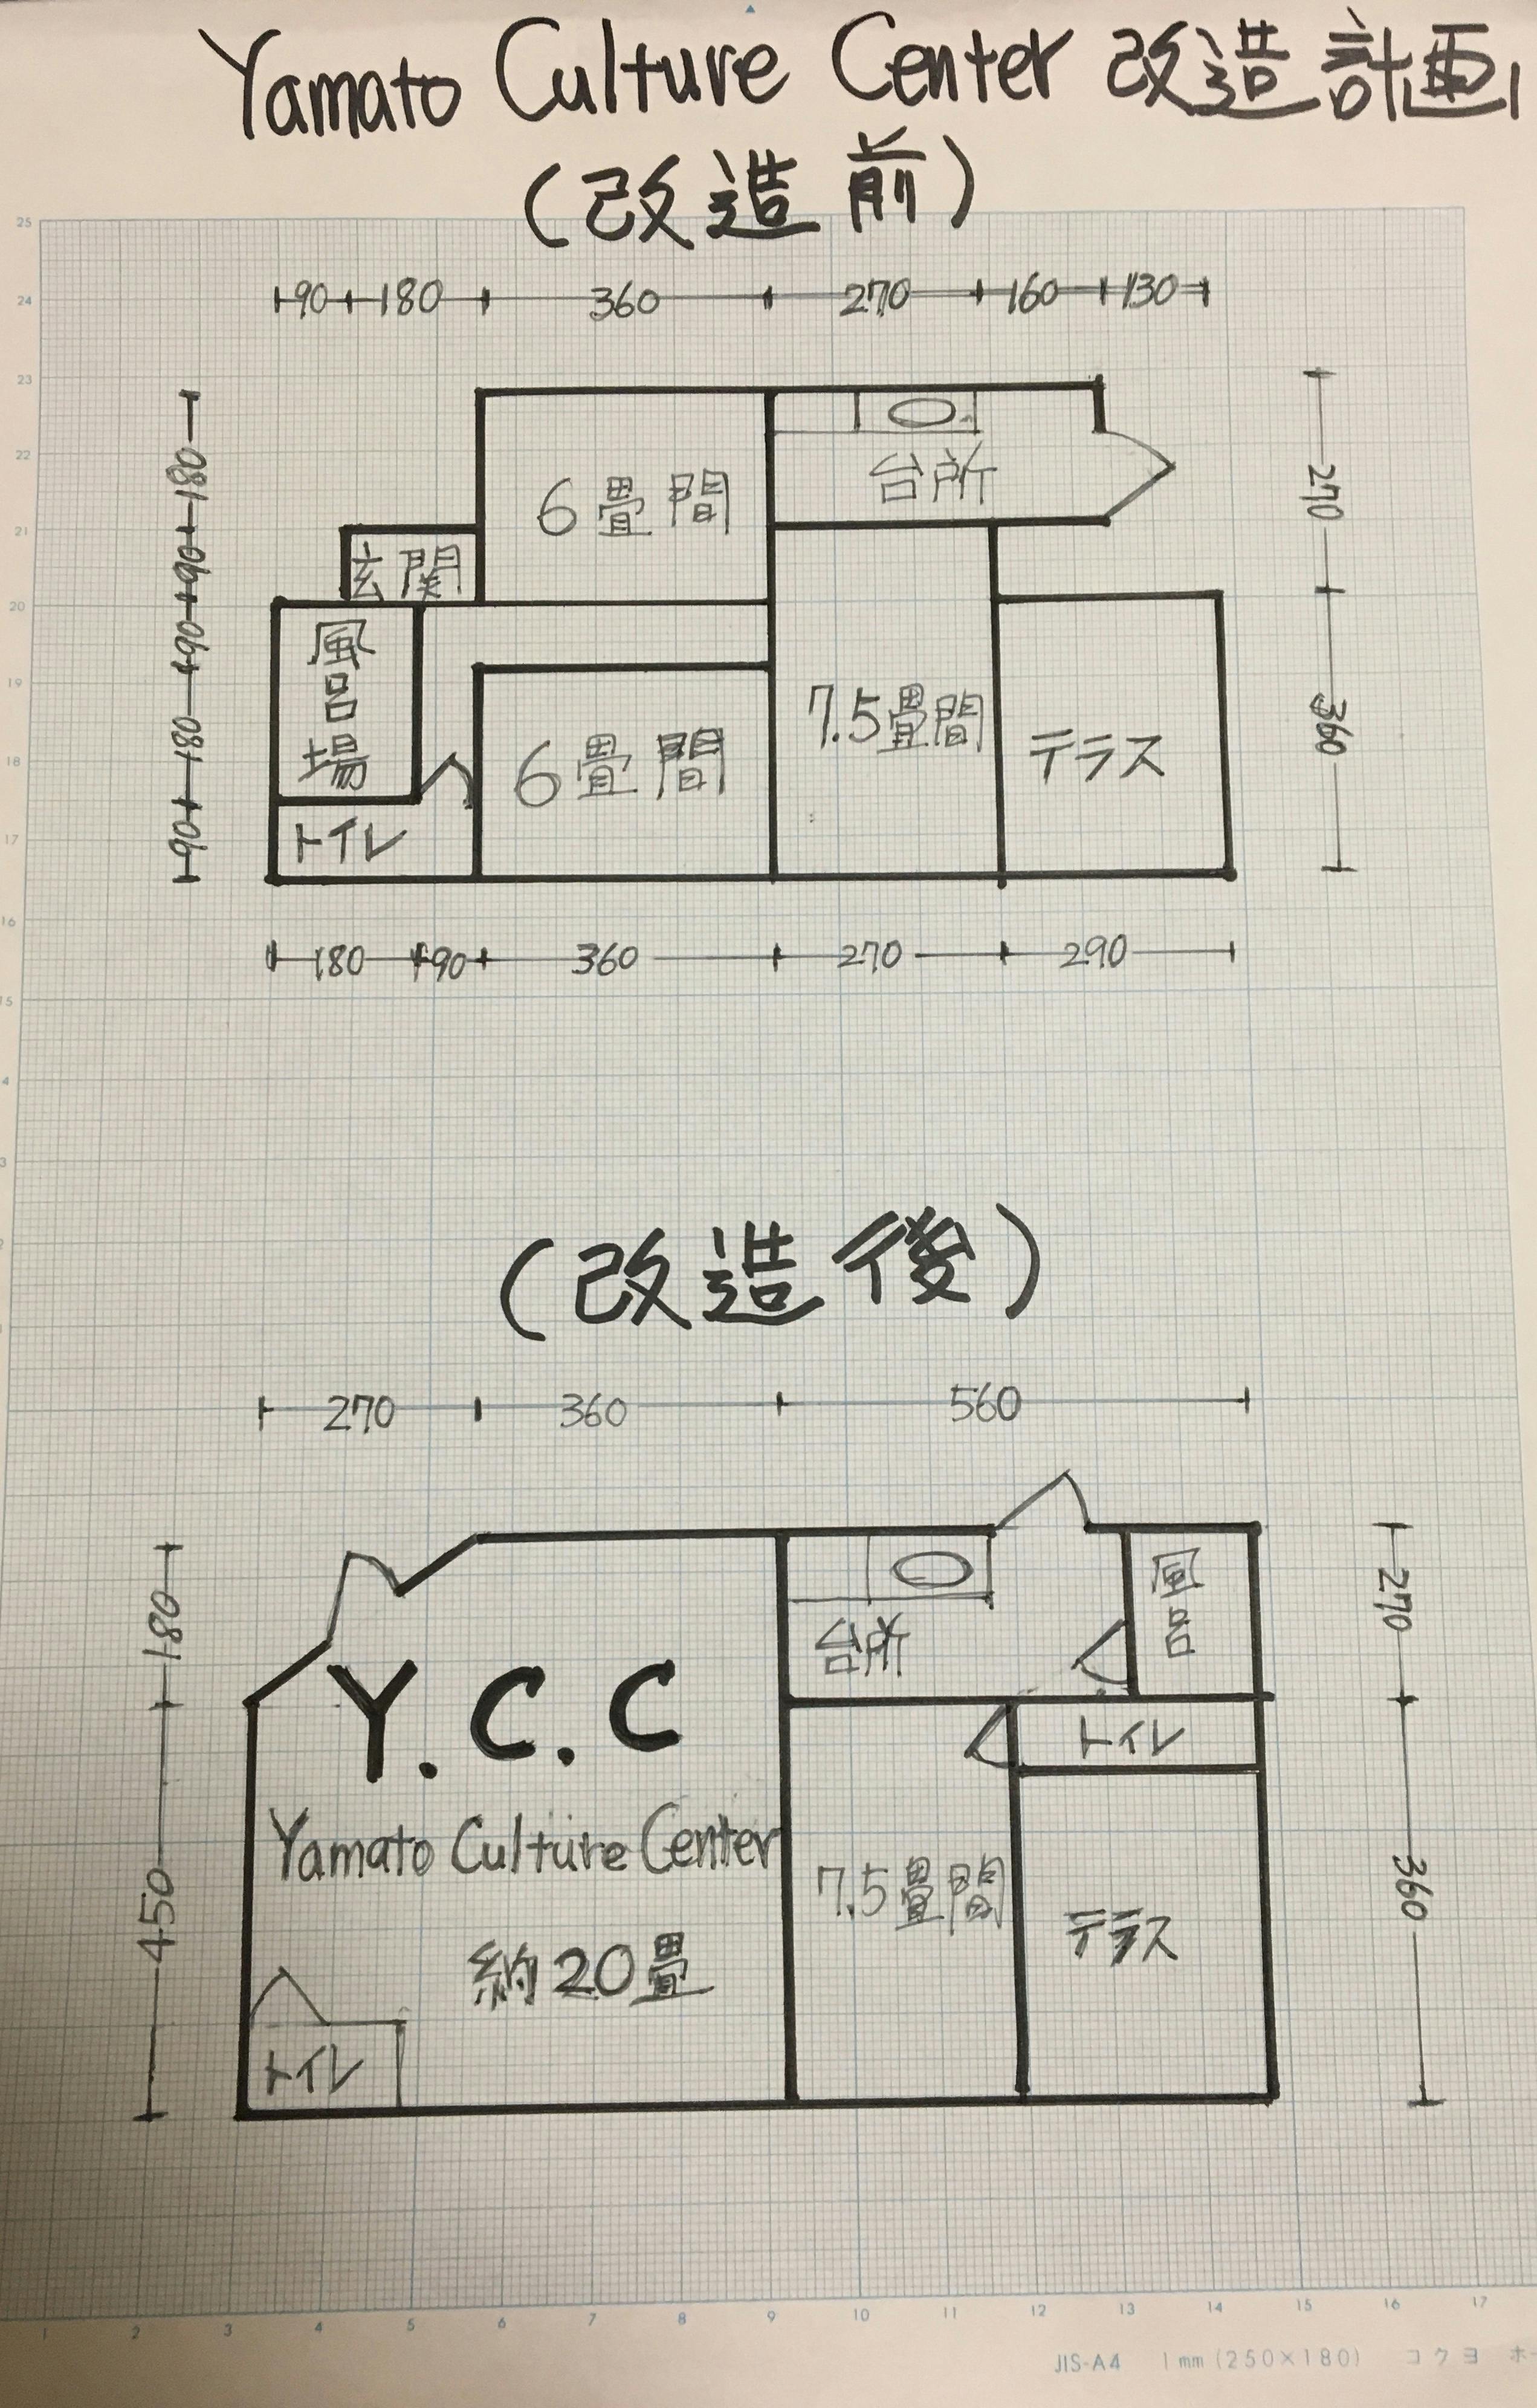 Yamato Culture Center 改造計画1
(改造前)
25
24
23
22
21
20
19
18
17
16
15
4
3
2
90 180 360 270 160 130
180
90
90
180
90
270
360
6畳間
台所
玄関
風呂場
6畳間
7.5畳間
テラス
トイレ
180 90 360 270 290
(改造後)
270 360 560
180
450
270
360
風呂
台所
Y.C.C
トイレ
Yamato Culture Center
7.5畳間
テラス
約20畳
トイレ
1 2 3 4 5 6 7 8 9 10 11 12 13 14 15 16 17
JIS-A4 1mm (250×180) コクヨ ホ